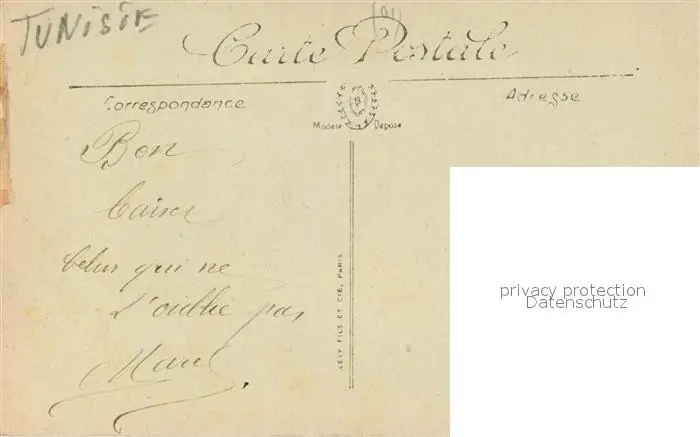 TUNISIE
Carte Postale
Correspondance
Adresse
Modèle Déposé
Bon
baiser
qui ne
t'oublie pas
Marcel
LEVY FILS ET CIE, PARIS
privacy protection
Datenschutz